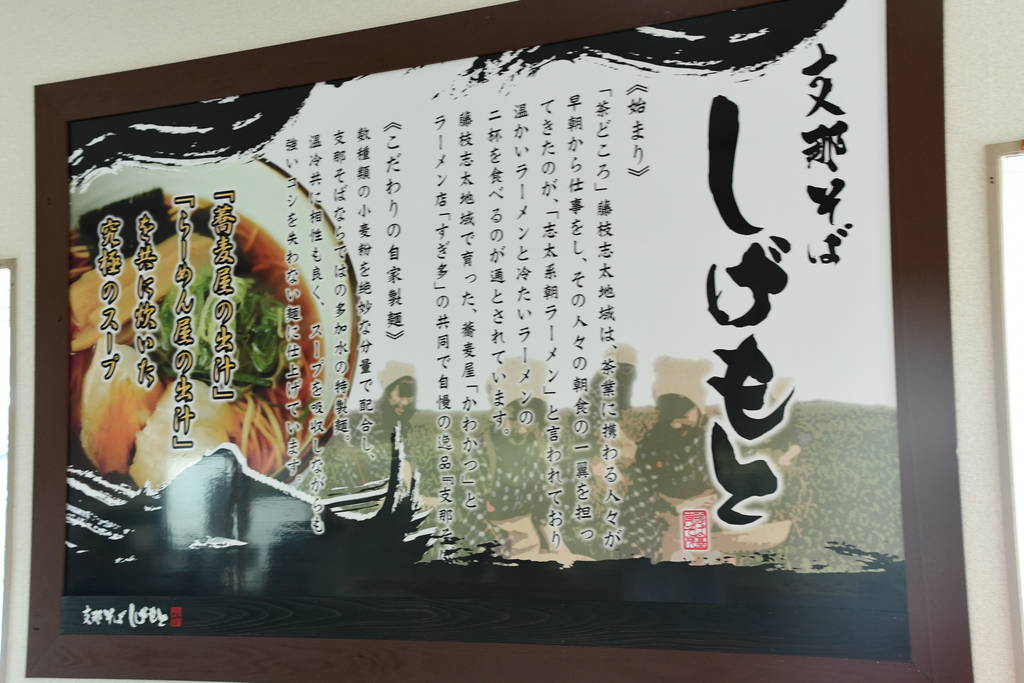 支那そば
しげもと
《始まり》
「茶どころ」藤枝志太地域は、茶業に携わる人々が
早朝から仕事をし、その人々の朝食の一翼を担っ
てきたのが、「志太系朝ラーメン」と言われており
温かいラーメンと冷たいラーメンの
二杯を食べるのが通とされています。
藤枝志太地域で育った、蕎麦屋「かわかつ」と
ラーメン店「すぎ多」の共同で自慢の逸品『支那そ
《こだわりの自家製麺》
数種類の小麦粉を絶妙な分量で配合し、
支那そばならではの多加水の特製麺。
温冷共に相性も良く、スープを吸収しながらも
強いコシを失わない麺に仕上げています。
『蕎麦屋の出汁』
『らーめん屋の出汁』
を共に炊いた
究極のスープ
支那そば しげもと